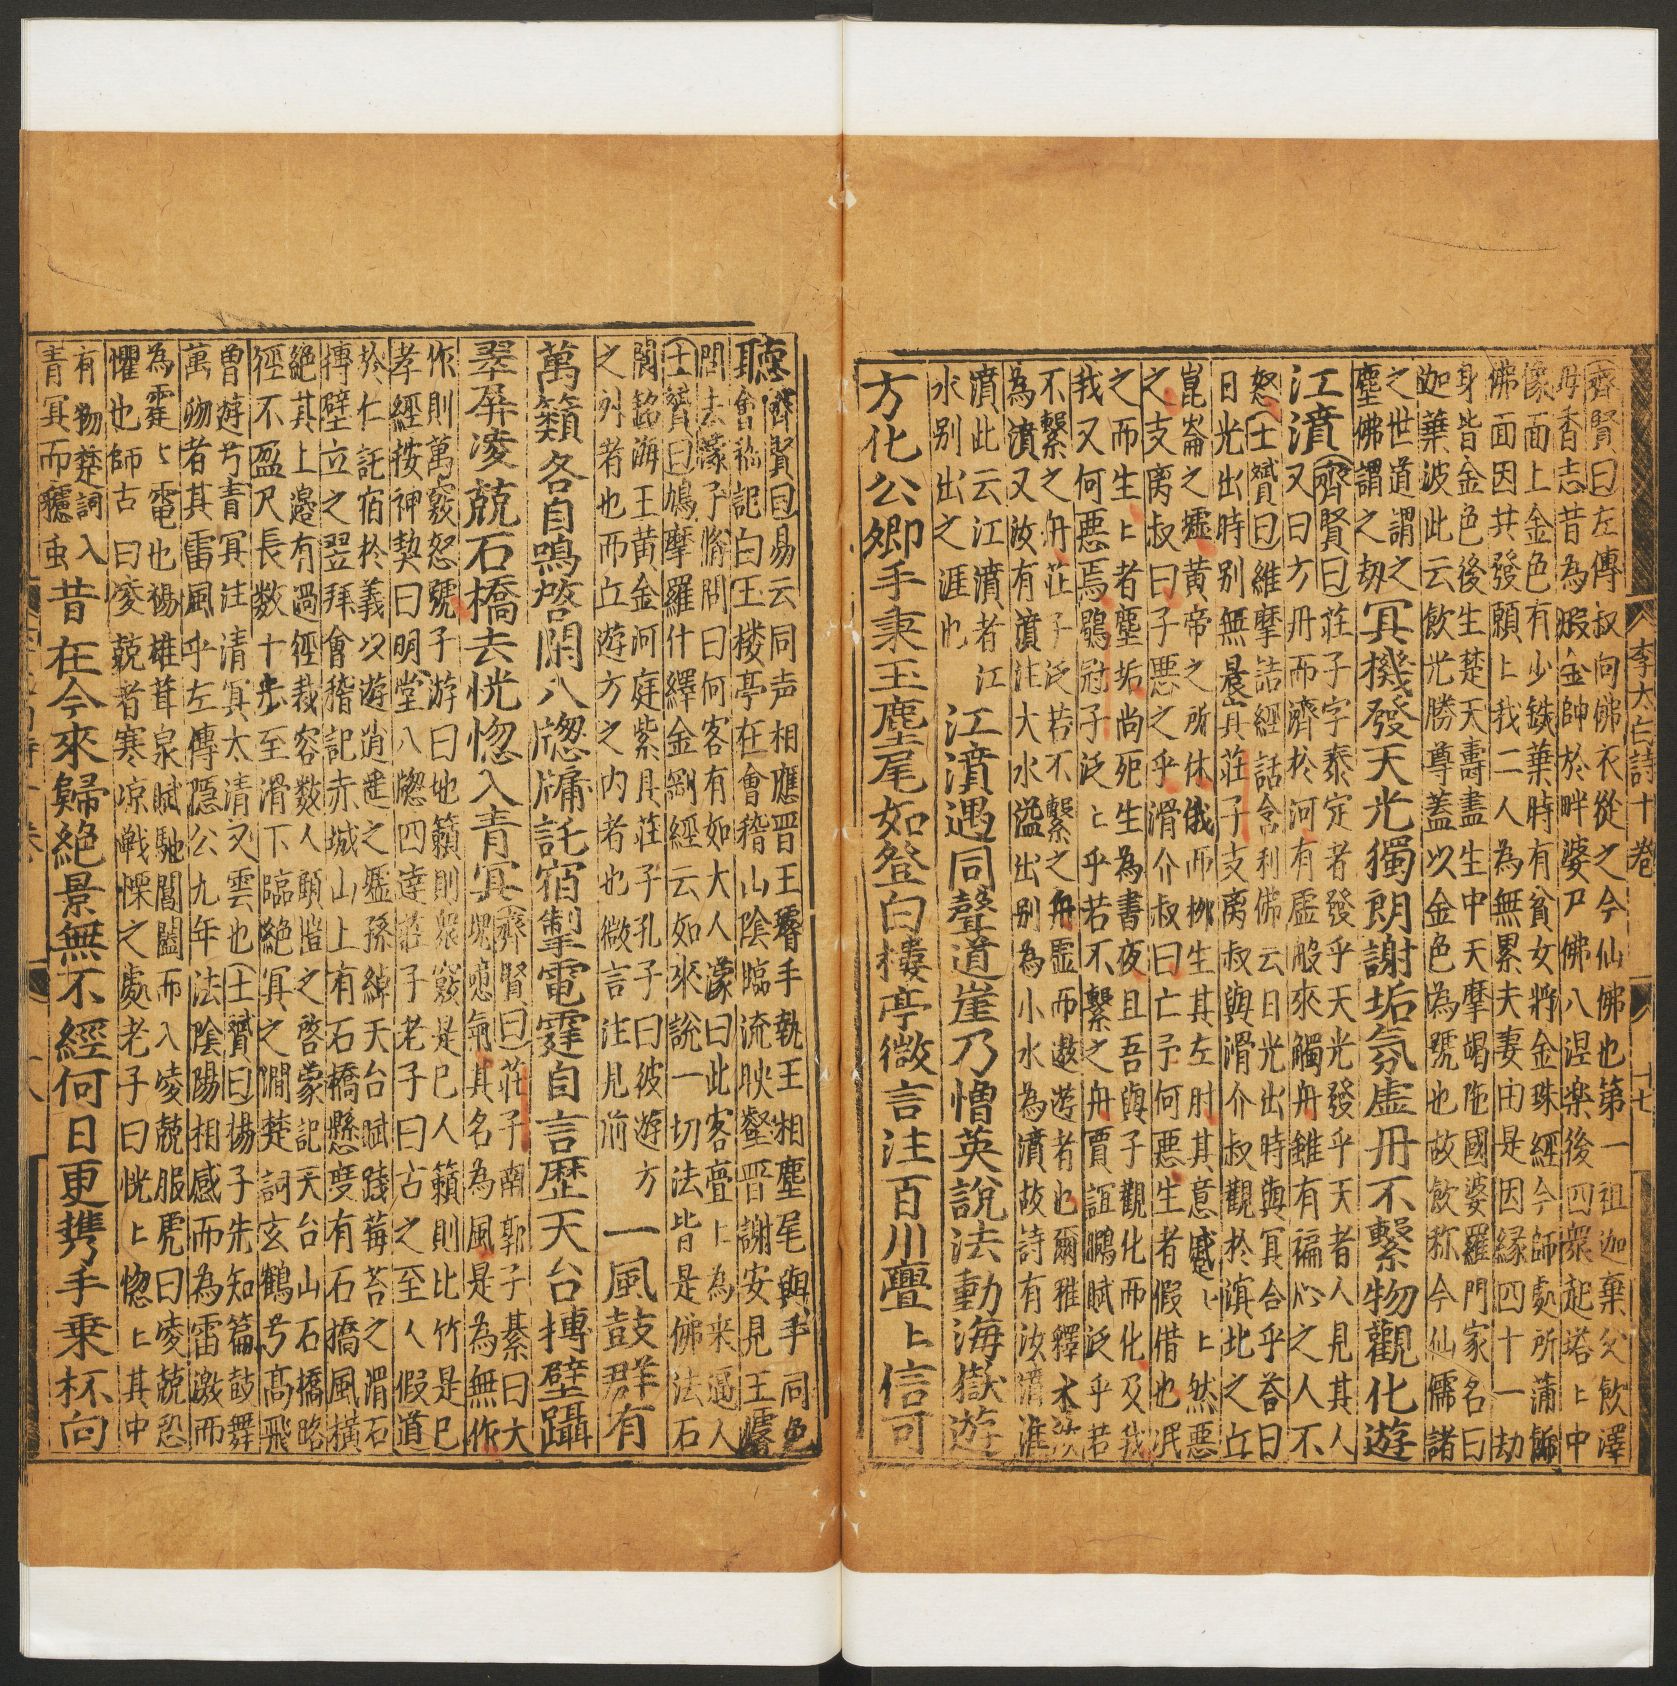 齊賢曰左傳叔向佛衣從之今仙佛也第一祖迦葉父飲澤
時香志昔為煅金師於畔婆尸佛八涅槃後四眾起塔上中
像面上金色有少鈌葉時有貧女將金珠經今師處所蒲飾
佛面因共發願上我二人為無累夫妻由是因緣四十一劫
身皆金色後生楚天壽盡生中天摩竭陁國婆羅門家名曰
迦葉波此云飲光勝尊蓋以金色為號也故飲称今仙儒諸
之世道謂之
塵佛謂之劫
冥機發天光獨朗謝垢氛虛舟不繫物觀化遊
江濆
齊賢曰莊子字泰定者發乎天光發乎天者人見其人
又曰方舟而濟於河有虛般來觸舟雖有褊心之人不
怒士贇曰維摩詰經話舍利佛云日光出時與冥合乎荅曰
日光出時別無晨冥莊子支离叔與滑介叔觀於滇北之丘
崑崙之墟黃帝之所休俄而桺生其左肘其意蹙ヒ上然惡
之支离叔曰子惡之乎滑介叔曰亡予何惡生者假借也汦
之而生上者塵垢尚死生為書夜且吾與子觀化而化及我
我又何惡焉鶡冠子泛上乎若不繫之舟賈誼鵬賦泛乎若
不繫之舟莊子泛若不繫之舟虛而遨遊者也爾雅釋水
為濆又汝有濆注大水溢出別為小水為濆故詩有汝濆淮
濆此云江濆者江
水別出之涯也
江濆遇同聲道崖乃憎英說法動海嶽遊
方化公卿手秉玉麈尾如登白樓亭微言注百川亹上信可
聽
齊賢曰易云同声相應晋王濬手執王相塵尾與手同色
會稽記白王楼亭在會稽山陰臨流映壑晋謝安見王濬
問去濛子脩問曰何客有如大人濛曰此客亹上為来逼人
士贇曰鳩摩羅什繹金剛經云如來說一切法皆是佛法石
闕銘海王黃金河庭紫貝莊子孔子曰彼遊方
之外者也而丘遊方之内者也微言注見前
一風鼓群有
萬籟各自鳴啓閉八牎牖託宿掣電霆自言歷天台搏壁躡
翠屏凌兢石橋去恍惚入青冥
齊賢曰莊子南郭子綦曰大
塊噫氣其名為風是為無作
作則萬竅怒號子游曰地籟則衆竅是巳人籟則比竹是巳
孝經按神契曰明堂八牎四達莊子老子曰古之至人假道
於仁託宿於義以遊逍遥之墟孫綽天台賦踐莓苔之滑石
搏壁立之翌拜會稽記赤城山上有石橋懸度有石橋風橫
絕其上邊有過徑裁容數人顧愷之啓蒙記天台山石橋路
徑不盈尺長數十步至滑下臨絕冥之澗楚詞玄鶴兮高飛
曾遊兮青冥注清冥太清又雲也士贇曰揚子先知篇鼓舞
萬物者其雷風乎左傳隱公九年法陰陽相感而為雷激而
為霆上電也揚雄茸泉賦馳閶闔而入凌兢服虎曰凌兢恐
懼也師古曰凌兢者寒凉戰慄之處老子曰恍上惚上其中
有物楚詞入
青冥而攄虫
昔在今來歸絕景無不經何日更携手乘杯向
李太白詩十卷
十七
十八